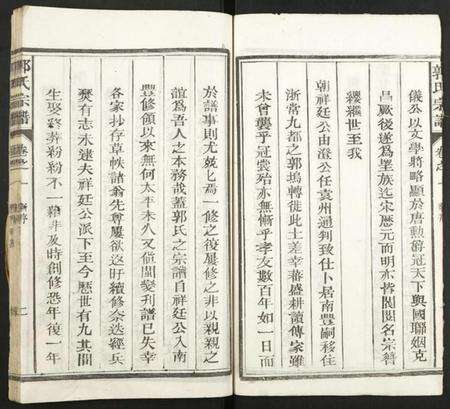 郭氏宗譜
卷之一
儀公以文學將略顯於唐勳爵冠天下與國聯姻克
昌厥後遂爲望族迄宋歷元而明亦皆閥閱名宗簪
纓繼世至我
朝祥廷公由澄公任袁州通判致仕卜居南豐嗣移住
浙常九都之郭塢轉徙此土差幸蕃盛耕讀傳家雖
未嘗襲乎冠裳殆未慨乎孝友數百年如一日而
於譜事則尤兢兢焉一修之後屢修之非以親親之
誼爲吾人之本務哉蓋郭氏之宗譜自祥廷公入南
豐修領以來無何太平未久又値闖變刋譜已失幸
各家抄存草帙諸翁先尊屢欲迄旴續修奈迭經兵
燹有志未逮夫祥廷公派下至今歷世有九其間
生娶終葬紛紛不一藉非及時創修恐年復一年
郭氏宗譜
卷之一